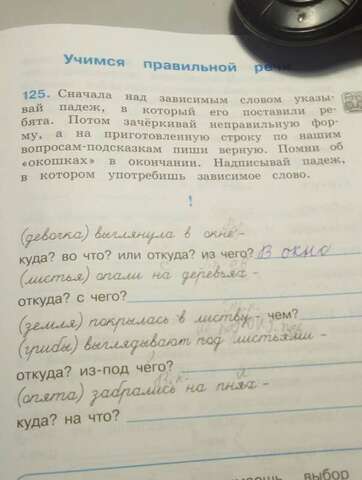 Учимся правильной речи
125. Сначала над зависимым словом указы-
вай падеж, в который его поставили ре-
бята. Потом зачёркивай неправильную фор-
му, а на приготовленную строку по нашим
вопросам-подсказкам пиши верную. Помни об
«окошках» в окончании. Надписывай падеж,
в котором употребишь зависимое слово.
!
(девочка) выглянула в окне-
куда? во что? или откуда? из чего? в окно
(листья) опали на деревьях-
откуда? с чего?
(земля) покрылась в листву- чем?
(грибы) выглядывают под листьями-
откуда? из-под чего?
(опята) забрались на пнях-
куда? на что?
выбор